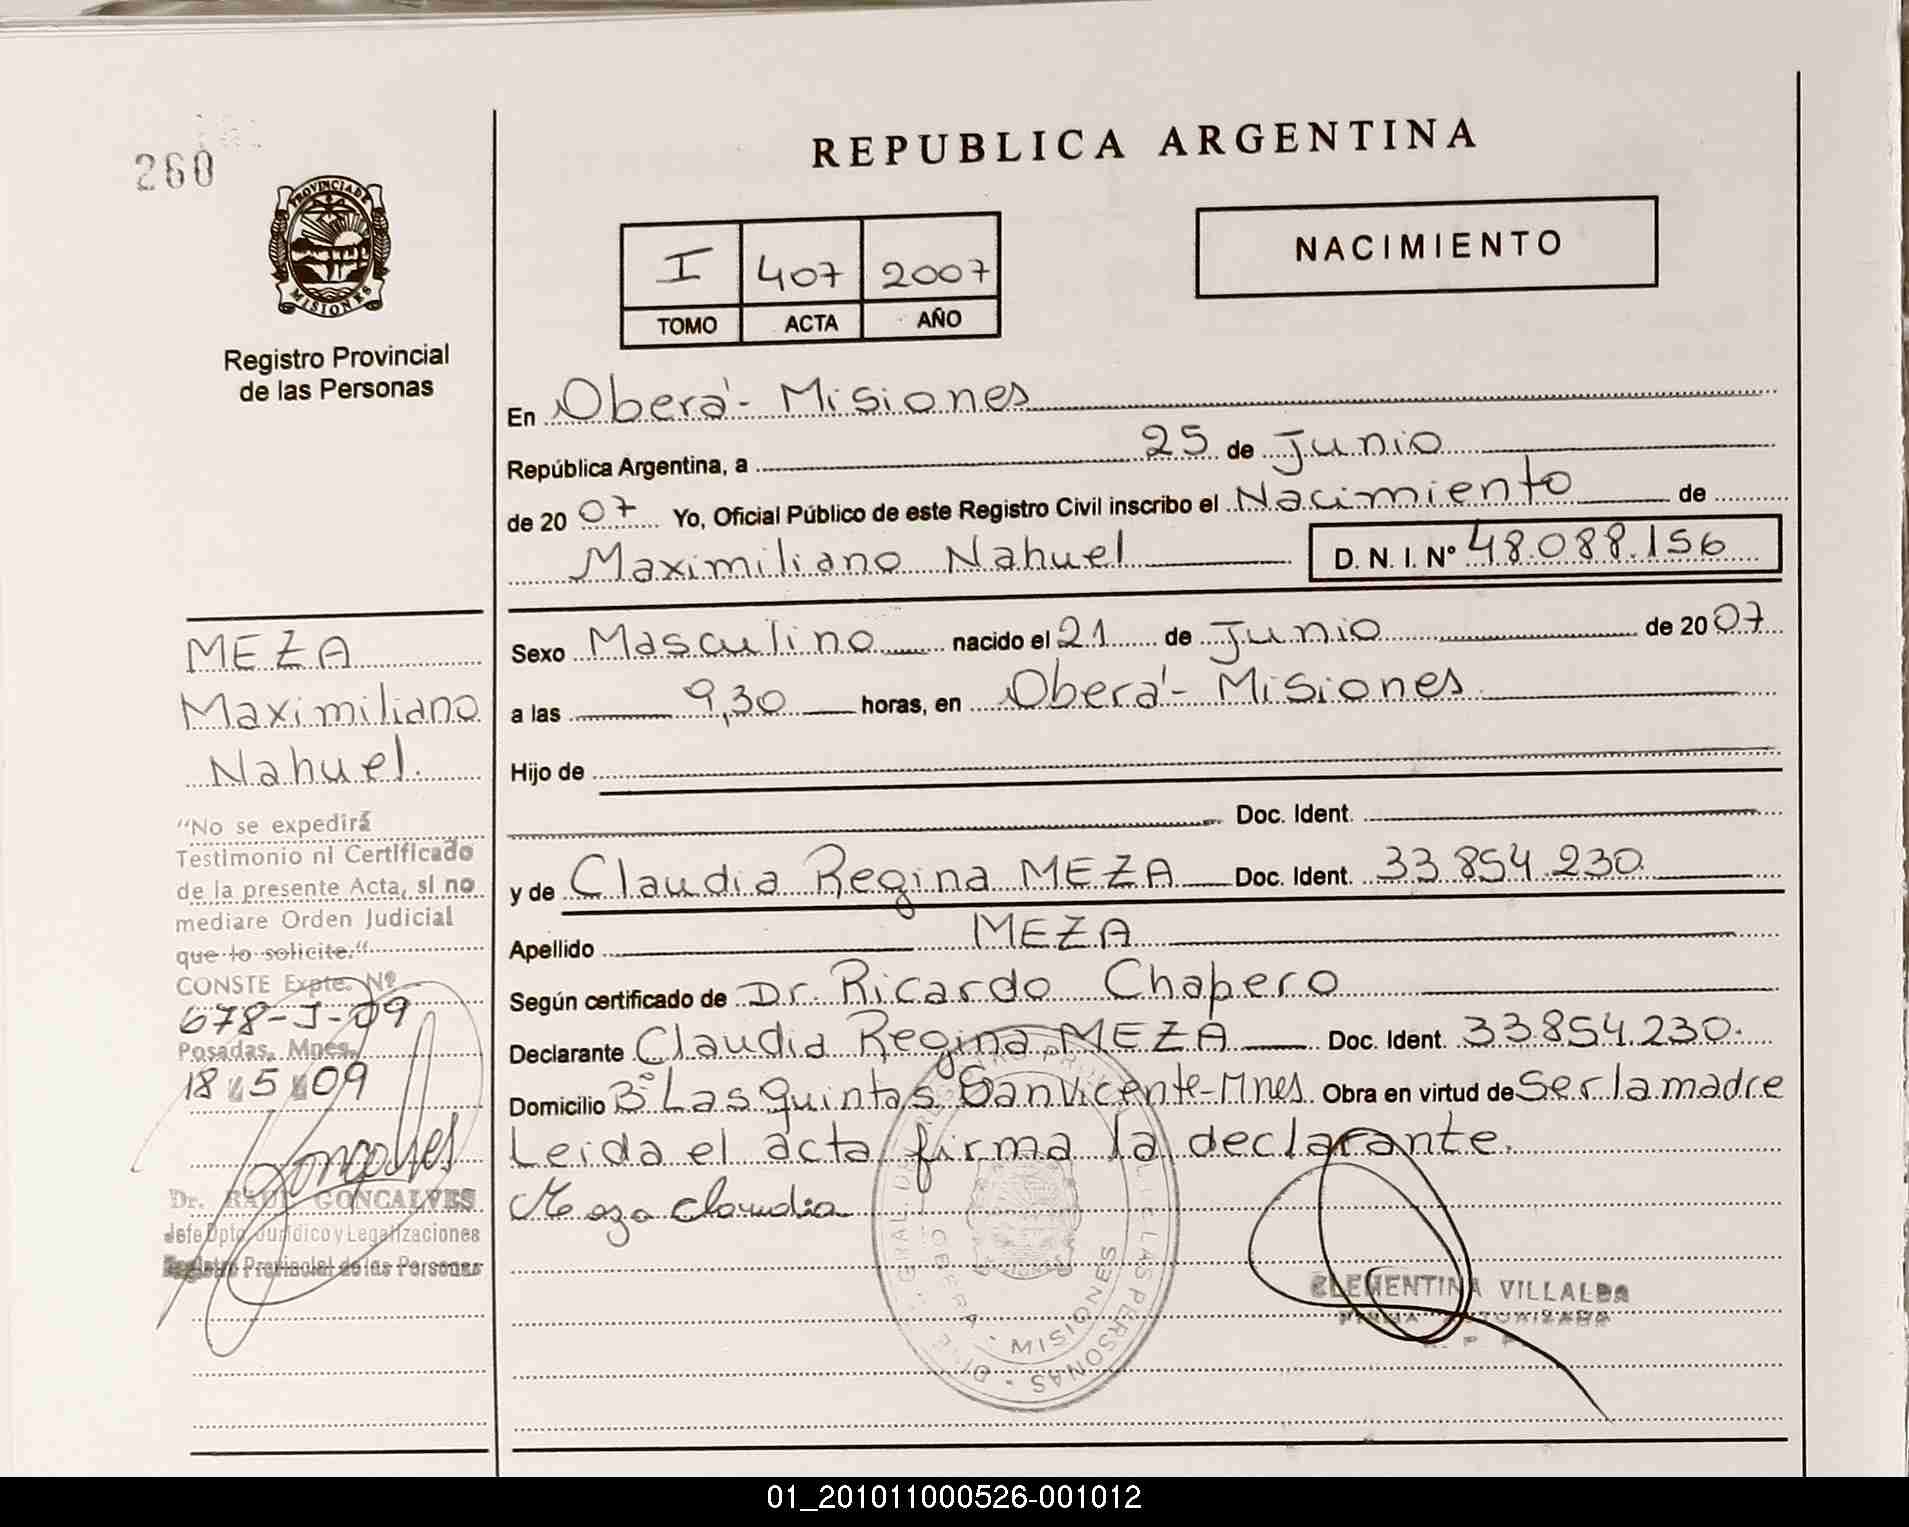 260
PROVINCIA DE
MISIONES
Registro Provincial
de las Personas
REPUBLICA ARGENTINA
NACIMIENTO
I 407 2007
TOMO ACTA AÑO
En Oberá - Misiones
República Argentina, a 25 de Junio
de 20 07 Yo, Oficial Público de este Registro Civil inscribo el Nacimiento de
Maximiliano Nahuel D. N. I. Nº 48.088.156
Sexo Masculino nacido el 21 de Junio de 20 07
a las 9,30 horas, en Oberá - Misiones
Hijo de
Doc. Ident.
y de Claudia Regina MEZA Doc. Ident. 33.854.230
Apellido MEZA
Según certificado de Dr. Ricardo Chapero
Declarante Claudia Regina MEZA Doc. Ident. 33.854.230.
Domicilio Bº Las Quintas San Vicente-Mnes Obra en virtud de Ser la madre
Leida el acta firma la declarante.
Meza Claudia
CLEMENTINA VILLALBA
FIRMA AUTORIZADA
OBERA - MISIONES
MEZA
Maximiliano
Nahuel.
"No se expedirá
Testimonio ni Certificado
de la presente Acta, si no
mediare Orden Judicial
que lo solicite."
CONSTE Expte. Nº
678-J-09
Posadas, Mnes.
18 5 09
Dr. RAUL GONCALVES
Jefe Dpto. Jurídico y Legalizaciones
Registro Provincial de las Personas
01_201011000526-001012